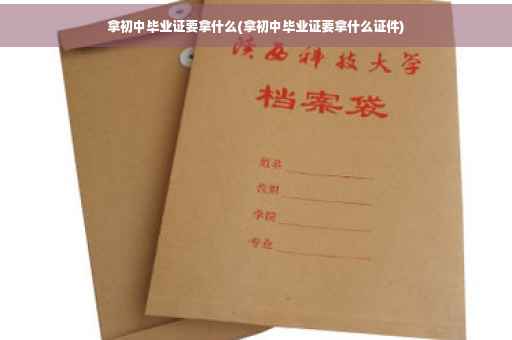 拿初中毕业证要拿什么(拿初中毕业证要拿什么证件)
陕西科技大学
档案袋
姓名
学院
专业